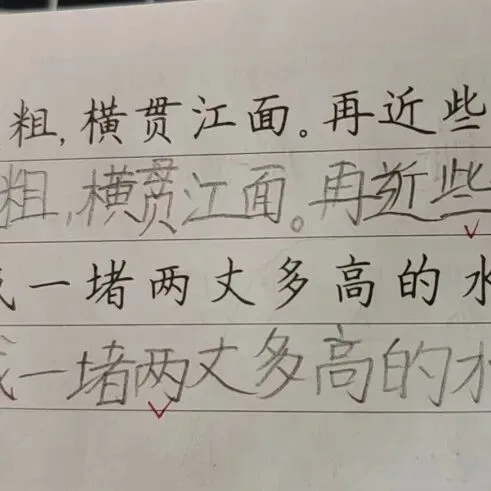 粗,横贯江面。再近些
粗,横贯江面。再近些
成一堵两丈多高的水
成一堵两丈多高的水